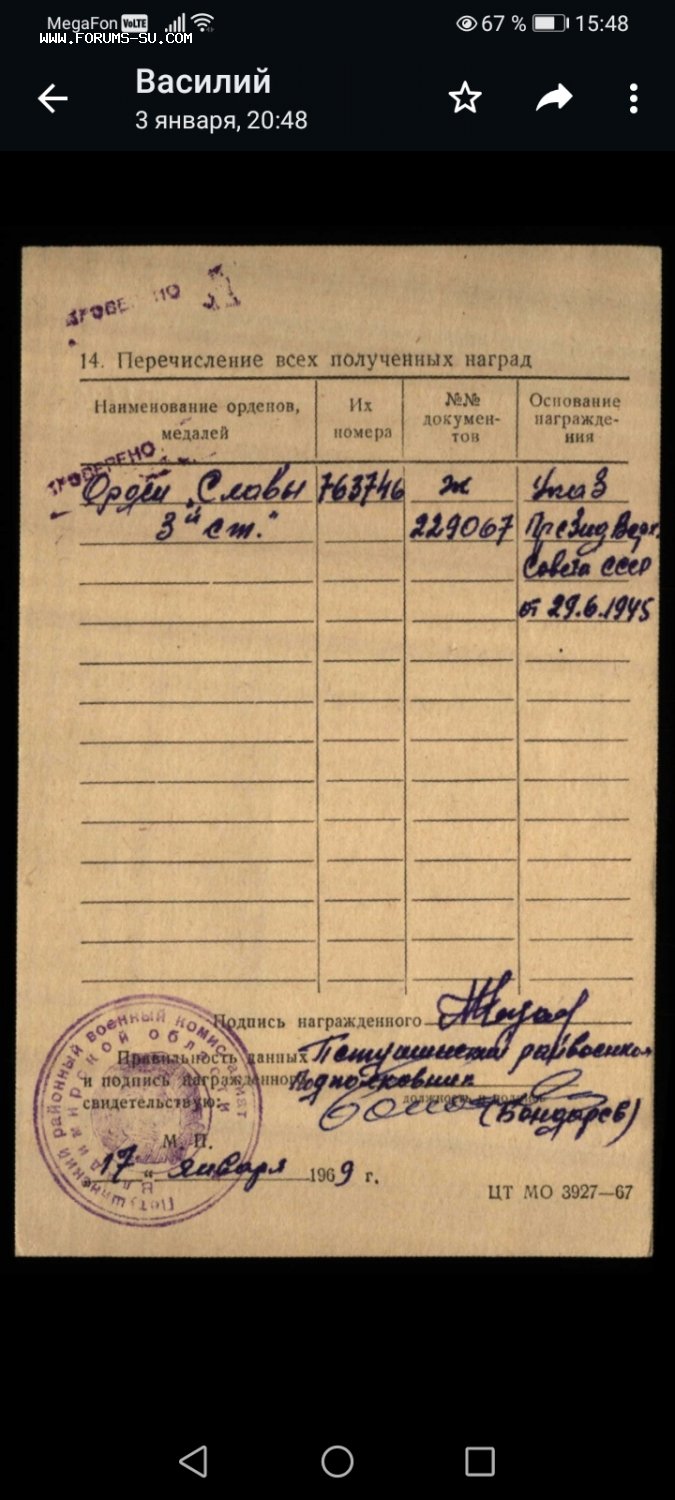 MegaFon VoLTE 67 % 15:48
WWW.FORUMS-SU.COM
Василий
3 января, 20:48
ПРОВЕРЕНО
14. Перечисление всех полученных наград
Наименование орденов, медалей
Их номера
№№ документов
Основание награждения
ПРОВЕРЕНО
Орден „Славы 763746 Ж Указ
3й ст." 229067 През Верх.
Совета СССР
от 29.6.1945
Подпись награжденного
Правильность данных Петушинский райвоенком
и подпись награжденного Подполковник
свидетельствую: должность и подпись
(Бондарев)
М. П.
„17" января 1969 г.
ЦТ МО 3927—67
Петушинский районный военный комиссариат
Владимирской области